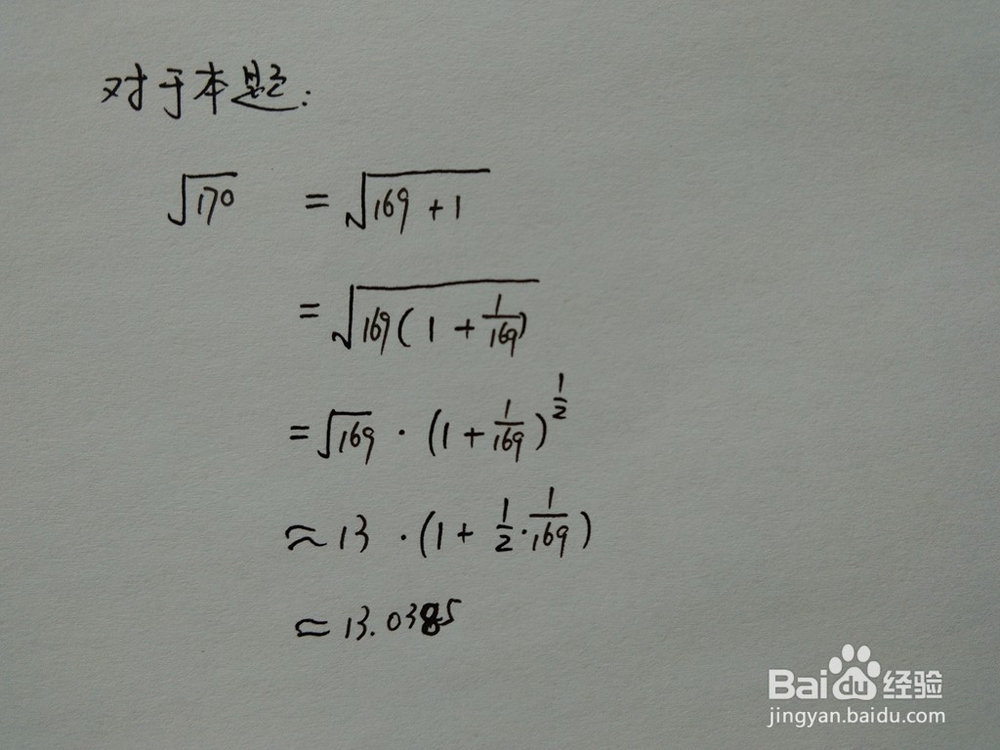 对于本题:
√170 = √(169 + 1)
= √(169(1 + 1/169))
= √169 · (1 + 1/169)^(1/2)
≈ 13 · (1 + 1/2 · 1/169)
≈ 13.0385
Baidu 经验
jingyan.baidu.com